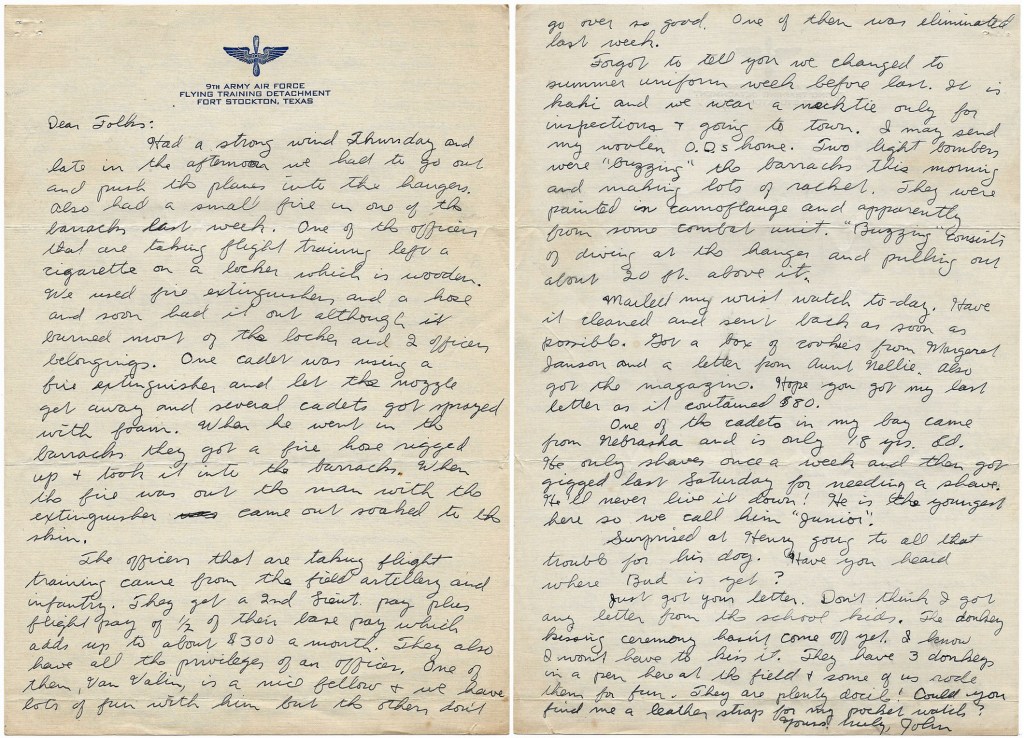 9TH ARMY AIR FORCE
FLYING TRAINING DETACHMENT
FORT STOCKTON, TEXAS
Dear Folks:
Had a strong wind Thursday and
late in the afternoon we had to go out
and push the planes into the hangers.
Also had a small fire in one of the
barracks last week. One of the officers
that are taking flight training left a
cigarette on a locker which is wooden.
We used fire extinguishers and a hose
and soon had it out although it
burned most of the locker and 2 officers
belongings. One cadet was using a
fire extinguisher and let the nozzle
get away and several cadets got sprayed
with foam. When he went in the
barracks they got a fire hose rigged
up & took it into the barracks. When
the fire was out the man with the
extinguisher came out soaked to the
skin.
The officers that are taking flight
training came from the field artillery and
infantry. They get a 2nd Lieut. pay plus
flight pay of 1/2 of their base pay which
adds up to about $300 a month. They also
have all the privileges of an officer. One of
them, Van Valin, is a nice fellow & we have
lots of fun with him but the others don't
go over so good. One of them was eliminated
last week.
Forgot to tell you we changed to
summer uniform week before last. It is
kahi and we wear a necktie only for
inspections & going to town. I may send
my woolen O.D.s home. Two light bombers
were "buzzing" the barracks this morning
and making lots of rachet. They were
painted in camoflauge and apparently
from some combat unit. "Buzzing" consists
of diving at the hanger and pulling out
about 20 ft. above it.
Mailed my wrist watch to-day. Have
it cleaned and sent back as soon as
possible. Got a box of cookies from Margaret
Janson and a letter from Aunt Nellie. Also
got the magazin. Hope you got my last
letter as it contained $80.
One of the cadets in my bay came
from Nebraska and is only 18 yrs. old.
He only shaves once a week and then got
gigged last Saturday for needing a shave.
He'll never live it down! He is the youngest
here so we call him "Junior".
Surprised at Henry going to all that
trouble for his dog. Have you heard
where Bud is yet?
Just got your letter. Don't think I got
any letter from the school kids. The donkey
kissing ceremony hasn't come off yet. I know
I won't have to kiss it. They have 3 donkeys
in a pen here at the field & some of us rode
them for fun. They are plenty docil! Could you
find me a leather strap for my pocket watch?
Yours truly, John